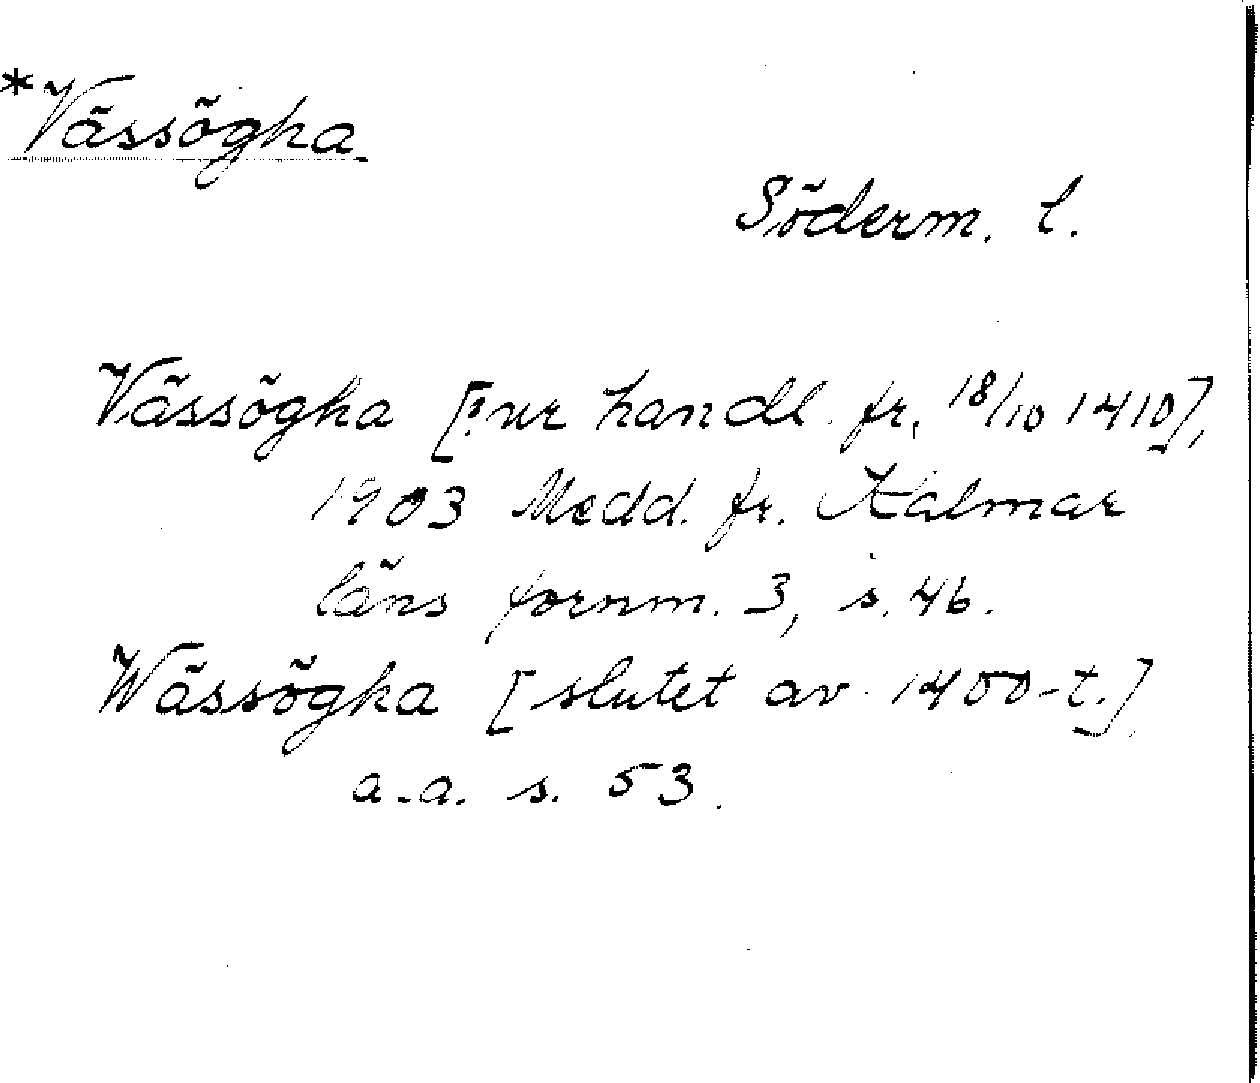 *Vässögha
Söderm. l.
Vässögha [ur handl. fr. 18/10 1410],
1903 Medd. fr. Kalmar
läns fornm. 3, s. 46.
Wässögha [slutet av 1400-t.]
a.a. s. 53.